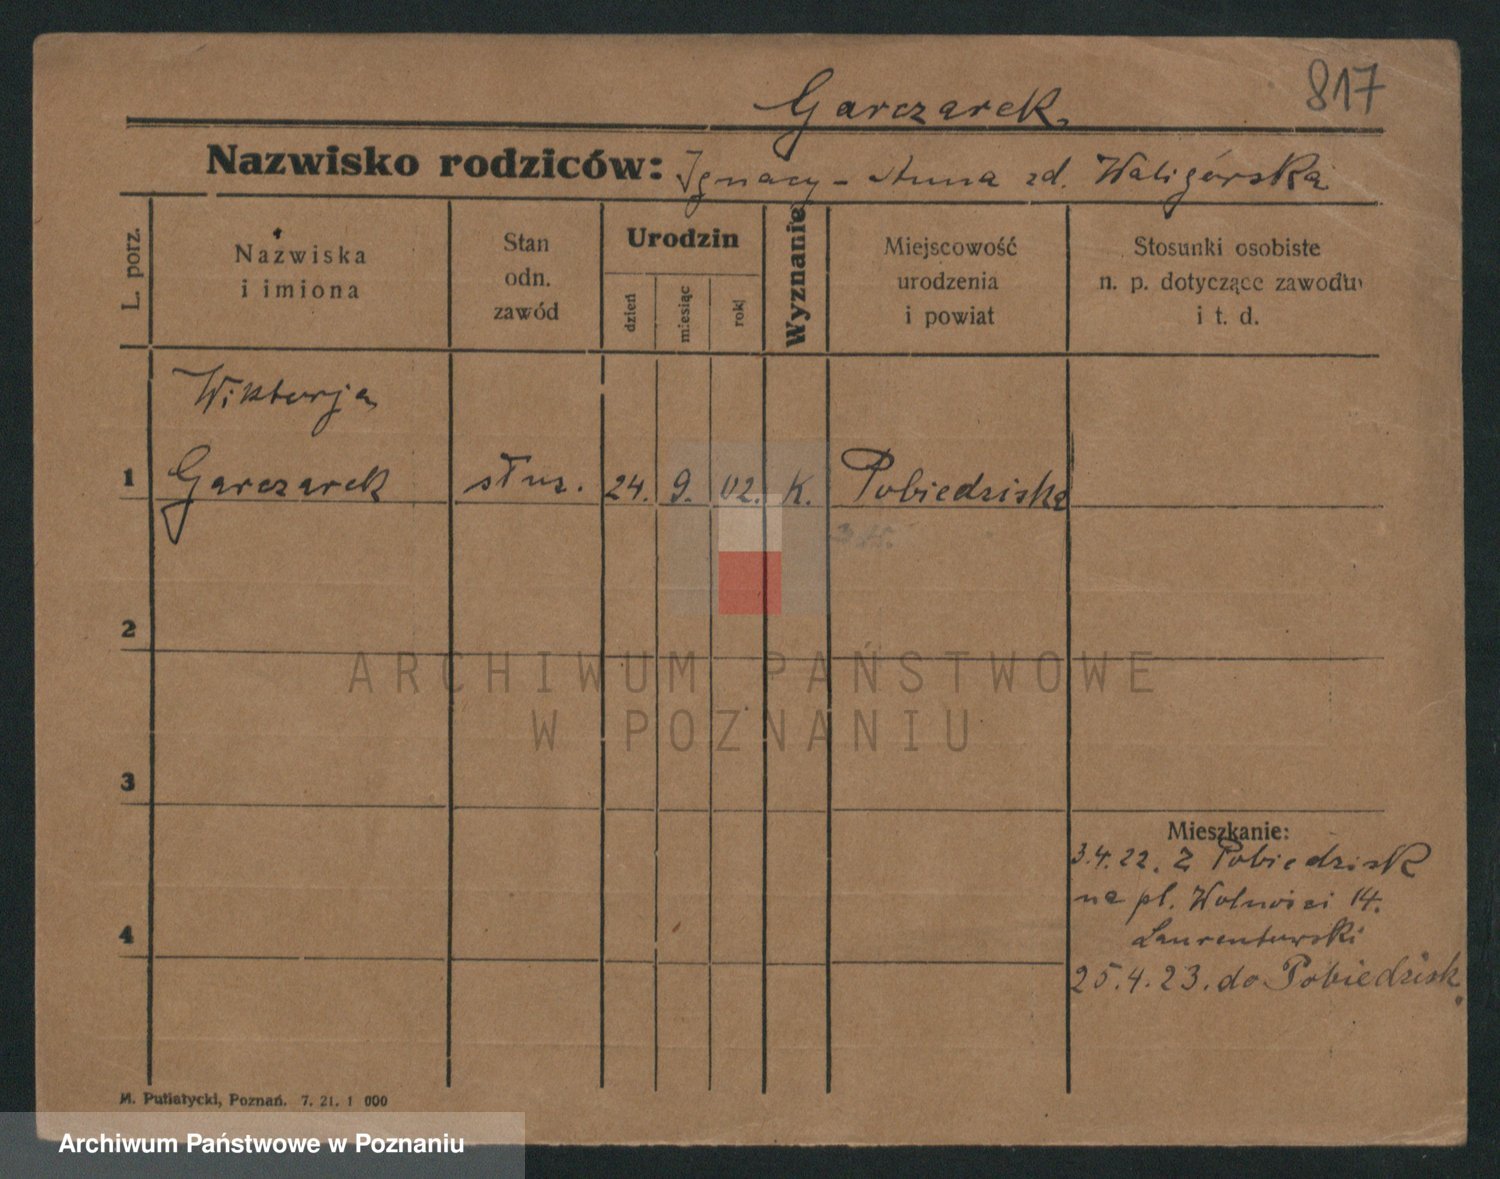 817
Garczarek
Nazwisko rodziców: Ignacy - Anna zd. Waligórska
L. porz.
Nazwiska
i imiona
Stan
odn.
zawód
Urodzin
dzień
miesiąc
rok
Wyznanie
Miejscowość
urodzenia
i powiat
Stosunki osobiste
n. p. dotyczące zawodu
i t. d.
Wiktorja
1 Garczarek służ. 24. 9. 02. K. Pobiedziska
2
ARCHIWUM PAŃSTWOWE
W POZNANIU
3
Mieszkanie:
3.4.22. z Pobiedzisk
na pl. Wolności 14.
Laurentowski
4
25.4.23. do Pobiedzisk
M. Putiatycki, Poznań. 7. 21. 1 000
Archiwum Państwowe w Poznaniu